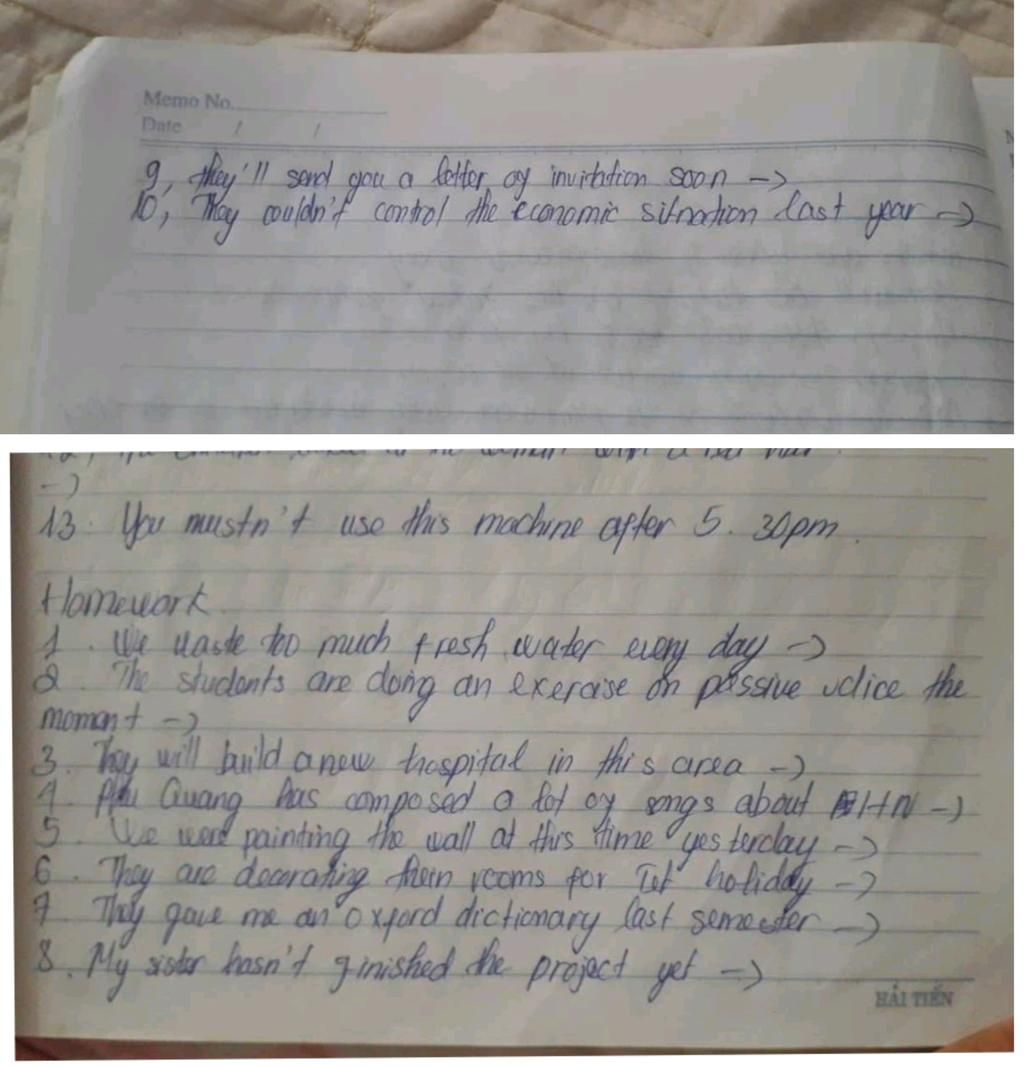 Memo No.
Date / /
9, they'll send you a letter of invitation soon ->
10, They couldn't control the economic situation last year ->
->
13. You mustn't use this machine after 5.30pm.
Homework
1. We waste too much fresh water every day ->
2. The students are doing an exercise on passive voice the
moment ->
3. They will build a new hospital in this area ->
4. Phu Quang has composed a lot of songs about HN ->
5. We were painting the wall at this time yesterday ->
6. They are decorating their rooms for Tet holiday ->
7. They gave me an Oxford dictionary last semester ->
8. My sister hasn't finished the project yet ->
HẢI TIẾN